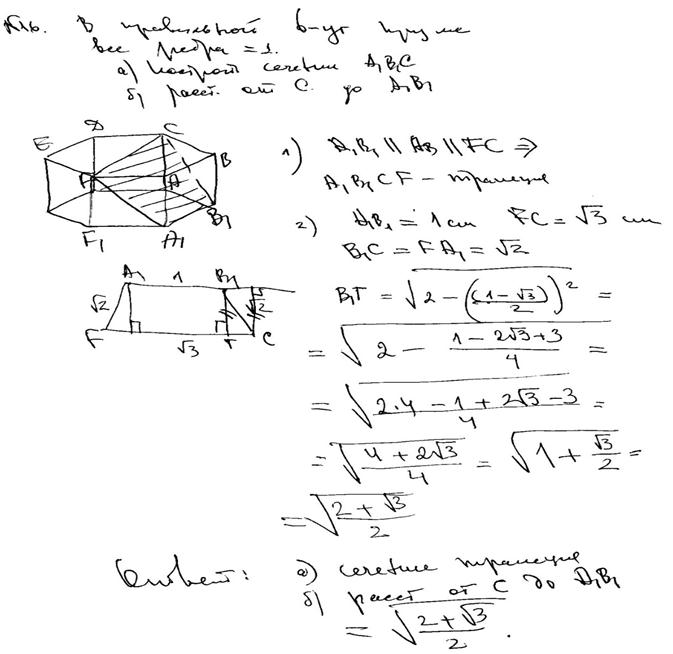 №16. В правильной 6-уг призме
все ребра = 1.
а) построй сечение A₁B₁C
б) расст. от C. до A₁B₁
D C
E
B
F A
B₁
F₁ A₁
1) A₁B₁ || AB || FC ⇒
A₁B₁CF – трапеция
2) A₁B₁ = 1 см FC = √3 см
B₁C = FA₁ = √2
A₁ 1 B₁
√2 √2
F √3 T C
B₁T = √(2 − ((1−√3)/2)²) =
= √(2 − (1 − 2√3 + 3)/4) =
= √((2·4 − 1 + 2√3 − 3)/4) =
= √((4 + 2√3)/4) = √(1 + √3/2) =
= √((2 + √3)/2)
Ответ: а) сечение трапеция
б) расст от C до A₁B₁
= √((2 + √3)/2).